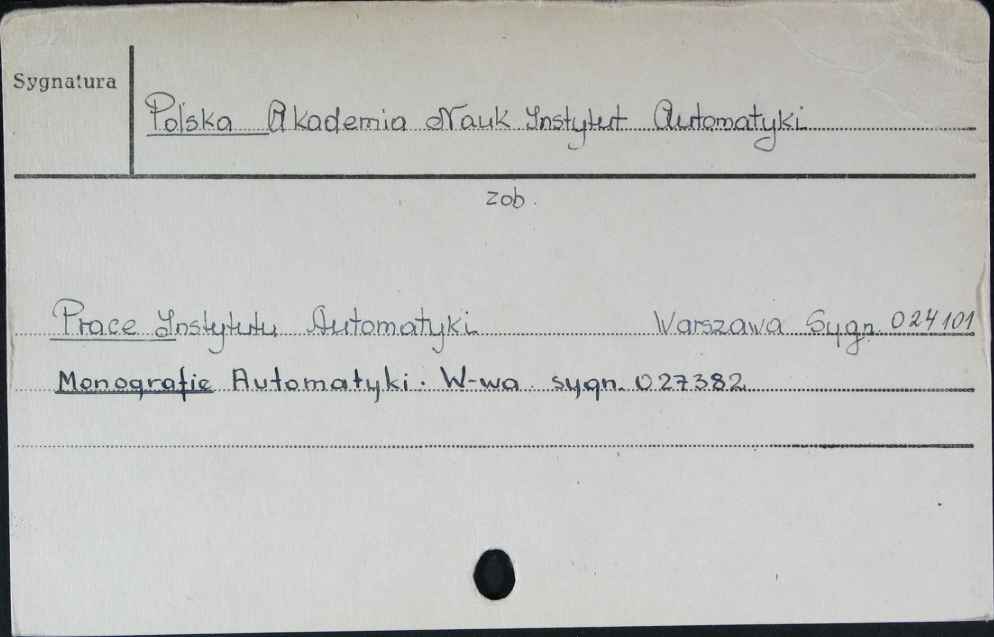 Sygnatura
Polska Akademia Nauk Instytut Automatyki
zob.
Prace Instytutu Automatyki Warszawa Sygn. 024101
Monografie Automatyki. W-wa sygn. 027382